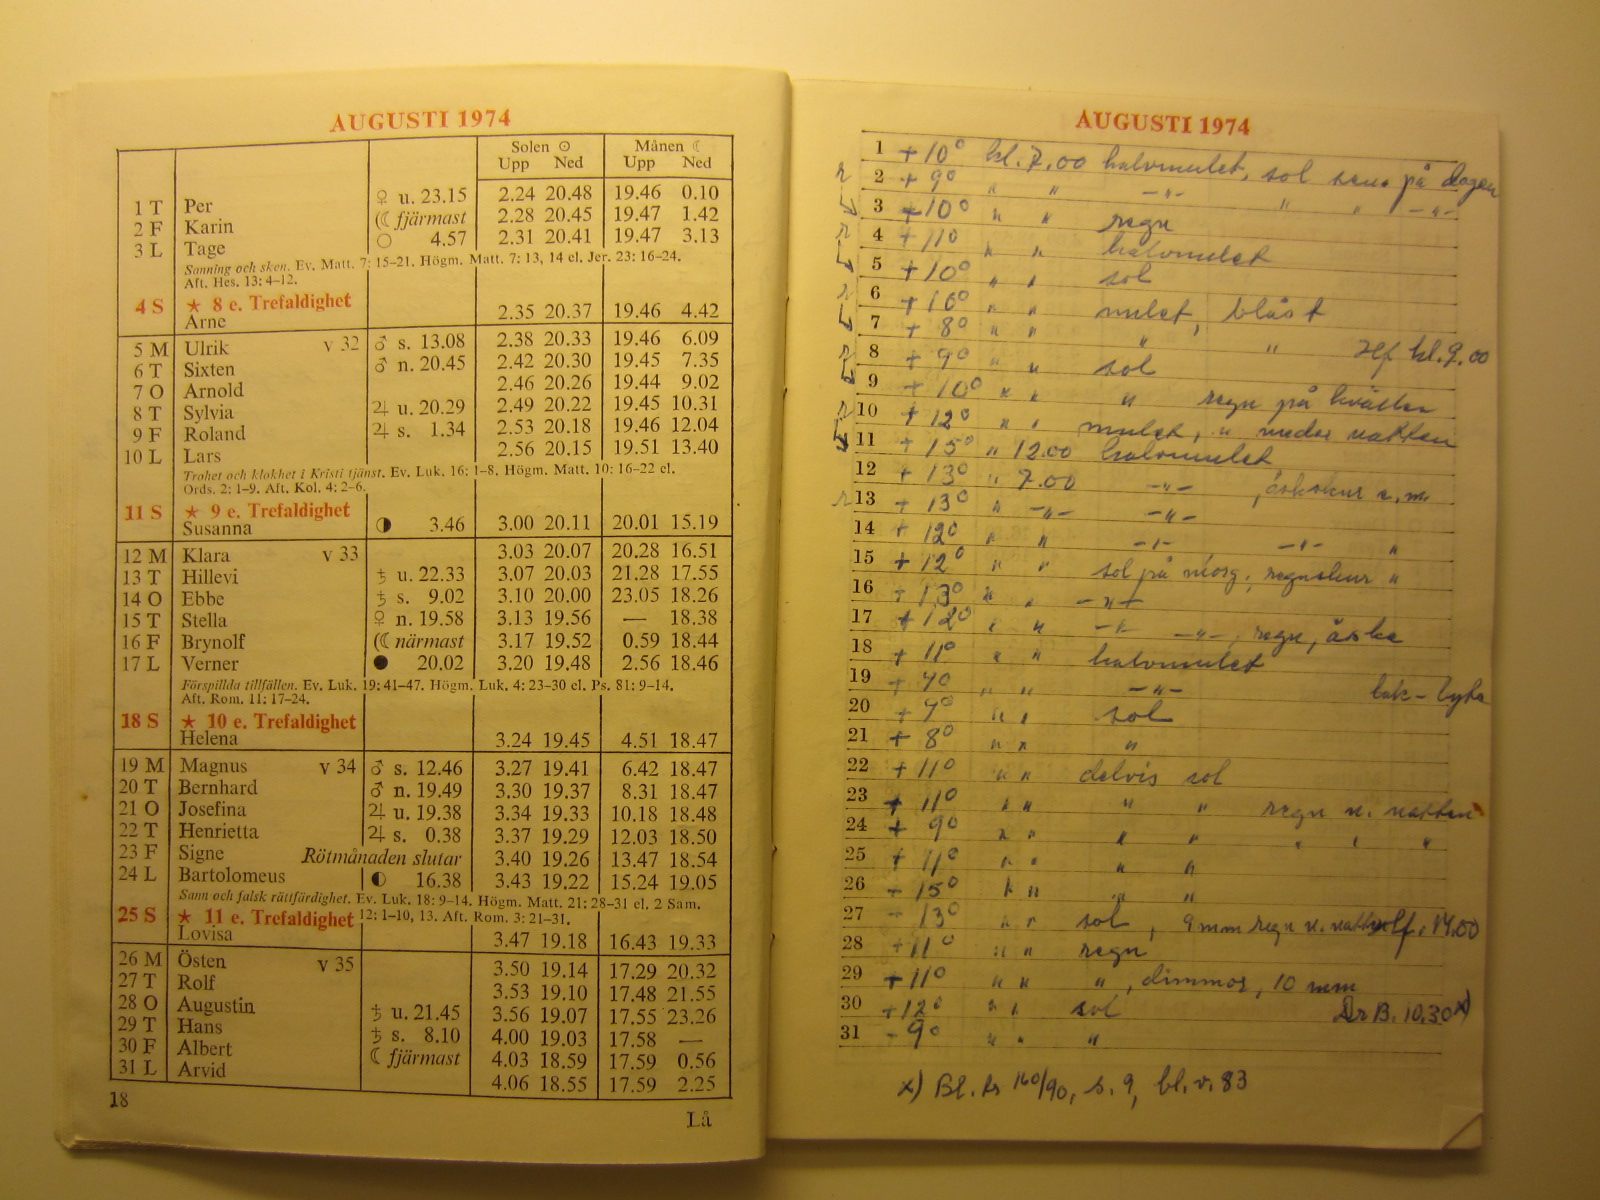 AUGUSTI 1974
Solen ☉ Månen ☾
Upp Ned Upp Ned
1 T Per ♀ u. 23.15 2.24 20.48 19.46 0.10
2 F Karin ☾ fjärmast 2.28 20.45 19.47 1.42
3 L Tage ○ 4.57 2.31 20.41 19.47 3.13
Sanning och sken. Ev. Matt. 7: 15-21. Högm. Matt. 7: 13, 14 el. Jer. 23: 16-24.
Aft. Hes. 13: 4-12.
4 S ★ 8 e. Trefaldighet
Arne 2.35 20.37 19.46 4.42
5 M Ulrik v 32 ♂ s. 13.08 2.38 20.33 19.46 6.09
6 T Sixten ♂ n. 20.45 2.42 20.30 19.45 7.35
7 O Arnold 2.46 20.26 19.44 9.02
8 T Sylvia ♃ u. 20.29 2.49 20.22 19.45 10.31
9 F Roland ♃ s. 1.34 2.53 20.18 19.46 12.04
10 L Lars 2.56 20.15 19.51 13.40
Trohet och klokhet i Kristi tjänst. Ev. Luk. 16: 1-8. Högm. Matt. 10: 16-22 el.
Ords. 2: 1-9. Aft. Kol. 4: 2-6.
11 S ★ 9 e. Trefaldighet
Susanna ◑ 3.46 3.00 20.11 20.01 15.19
12 M Klara v 33 3.03 20.07 20.28 16.51
13 T Hillevi ♄ u. 22.33 3.07 20.03 21.28 17.55
14 O Ebbe ♄ s. 9.02 3.10 20.00 23.05 18.26
15 T Stella ♀ n. 19.58 3.13 19.56 — 18.38
16 F Brynolf ☾ närmast 3.17 19.52 0.59 18.44
17 L Verner ● 20.02 3.20 19.48 2.56 18.46
Förspillda tillfällen. Ev. Luk. 19: 41-47. Högm. Luk. 4: 23-30 el. Ps. 81: 9-14.
Aft. Rom. 11: 17-24.
18 S ★ 10 e. Trefaldighet
Helena 3.24 19.45 4.51 18.47
19 M Magnus v 34 ♂ s. 12.46 3.27 19.41 6.42 18.47
20 T Bernhard ♂ n. 19.49 3.30 19.37 8.31 18.47
21 O Josefina ♃ u. 19.38 3.34 19.33 10.18 18.48
22 T Henrietta ♃ s. 0.38 3.37 19.29 12.03 18.50
23 F Signe Rötmånaden slutar 3.40 19.26 13.47 18.54
24 L Bartolomeus ◐ 16.38 3.43 19.22 15.24 19.05
Sann och falsk rättfärdighet. Ev. Luk. 18: 9-14. Högm. Matt. 21: 28-31 el. 2 Sam.
25 S ★ 11 e. Trefaldighet 12: 1-10, 13. Aft. Rom. 3: 21-31.
Lovisa 3.47 19.18 16.43 19.33
26 M Östen v 35 3.50 19.14 17.29 20.32
27 T Rolf 3.53 19.10 17.48 21.55
28 O Augustin ♄ u. 21.45 3.56 19.07 17.55 23.26
29 T Hans ♄ s. 8.10 4.00 19.03 17.58 —
30 F Albert ☾ fjärmast 4.03 18.59 17.59 0.56
31 L Arvid 4.06 18.55 17.59 2.25
18
Lå
AUGUSTI 1974
1 +10° kl. 7.00 halvmulet, sol sen. på dagen
2 + 9° " " -"- " " -"-
3 +10° " " regn
4 +11° " " halvmulet
5 +10° " " sol
6 +10° " " mulet, blåst
7 + 8° " " " " kl. 9.00
8 + 9° " " sol
9 +10° " " " regn på kvällen
10 +12° " " mulet, " under natten
11 +15° " 12.00 halvmulet
12 +13° " 7.00 -"- , åskskur e.m.
13 +13° " -"- -"-
14 +12° " " -"- -"- "
15 +12° " " sol på morg, regnskur "
16 +13° " " -"-
17 +12° " " -"- -"-, regn, åska
18 +11° " " halvmulet
19 + 7° " " -"-
20 + 7° " " sol
21 + 8° " " "
22 +11° " " delvis sol
23 +11° " " " " regn u. natten
24 + 9° " " " " " " "
25 +11° " " " "
26 +15° " " " "
27 13° " " sol, 9 mm regn u. 14.00
28 +11° " " regn
29 +11° " " ", dimmor, 10 mm
30 +12° " " sol Dr B. 10.30 x)
31 - 9° " " "
x) Bl. 160/90, s. 9, bl. v. 83